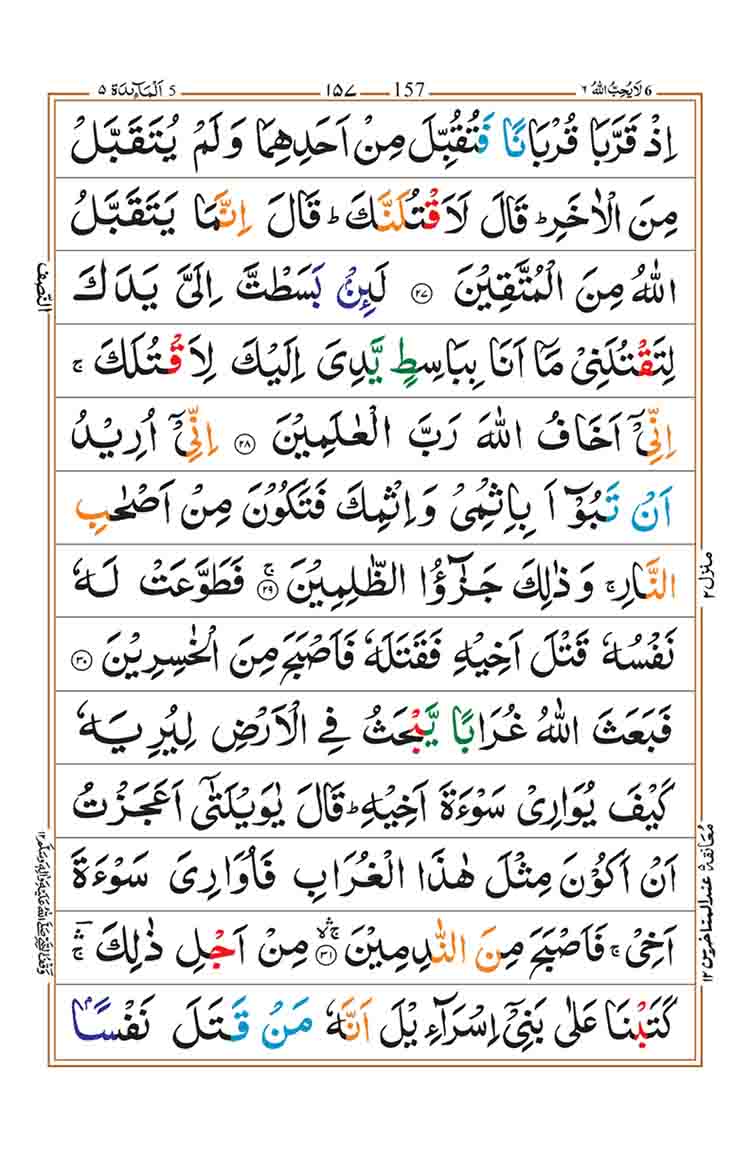 6 لَا یُحِبُّ اللہُ ٦
157 ۱۵۷
5 اَلْمَآئِدَة ۵
اِذْ قَرَّبَا قُرْبَانًا فَتُقُبِّلَ مِنْ اَحَدِهِمَا وَلَمْ یُتَقَبَّلْ
مِنَ الْاٰخَرِ ؕ قَالَ لَاَقْتُلَنَّكَ ؕ قَالَ اِنَّمَا یَتَقَبَّلُ
اللّٰهُ مِنَ الْمُتَّقِیْنَ ۲۷ لَىِٕنْۢ بَسَطْتَّ اِلَیَّ یَدَكَ
لِتَقْتُلَنِیْ مَاۤ اَنَا بِبَاسِطٍ یَّدِیَ اِلَیْكَ لِاَقْتُلَكَ ۚ
اِنِّیْۤ اَخَافُ اللّٰهَ رَبَّ الْعٰلَمِیْنَ ۲۸ اِنِّیْۤ اُرِیْدُ
اَنْ تَبُوْٓاَ بِاِثْمِیْ وَاِثْمِكَ فَتَكُوْنَ مِنْ اَصْحٰبِ
النَّارِ ۚ وَذٰلِكَ جَزٰٓؤُا الظّٰلِمِیْنَ ۚ ۲۹ فَطَوَّعَتْ لَهٗ
نَفْسُهٗ قَتْلَ اَخِیْهِ فَقَتَلَهٗ فَاَصْبَحَ مِنَ الْخٰسِرِیْنَ ۳۰
فَبَعَثَ اللّٰهُ غُرَابًا یَّبْحَثُ فِی الْاَرْضِ لِیُرِیَهٗ
كَیْفَ یُوَارِیْ سَوْءَةَ اَخِیْهِ ؕ قَالَ یٰوَیْلَتٰۤی اَعَجَزْتُ
اَنْ اَكُوْنَ مِثْلَ هٰذَا الْغُرَابِ فَاُوَارِیَ سَوْءَةَ
اَخِیْ ۚ فَاَصْبَحَ مِنَ النّٰدِمِیْنَ ۳۱ ۚۛۙ مِنْ اَجْلِ ذٰلِكَ ؔۛۚ
كَتَبْنَا عَلٰی بَنِیْۤ اِسْرَآءِیْلَ اَنَّهٗ مَنْ قَتَلَ نَفْسًۢا
النّصف
منزل ۲
معانقة عند المتاخرین ۱۲